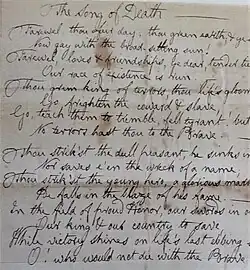 The Song of Death
Farewel thou fair day, thou green earth, & ye
Now gay with the broad setting sun!
Farewel, loves & friendships, ye dear, tender ties
Our race of existence is run.
Thou grim king of terrors, thou life's gloom
Go frighten the coward & slave,
Go, teach them to tremble, fell tyrant, but
No terrors hast thou to the Brave.
Thou strik'st the dull peasant, he sinks in
Nor saves e'en the wreck of a name
Thou strik'st the young hero, a glorious mark
He falls in the blaze of his fame
In the field of proud Honor, our swords in
Our king & our country to save
While victory shines on life's last ebbing
O! who would not die with the Brave